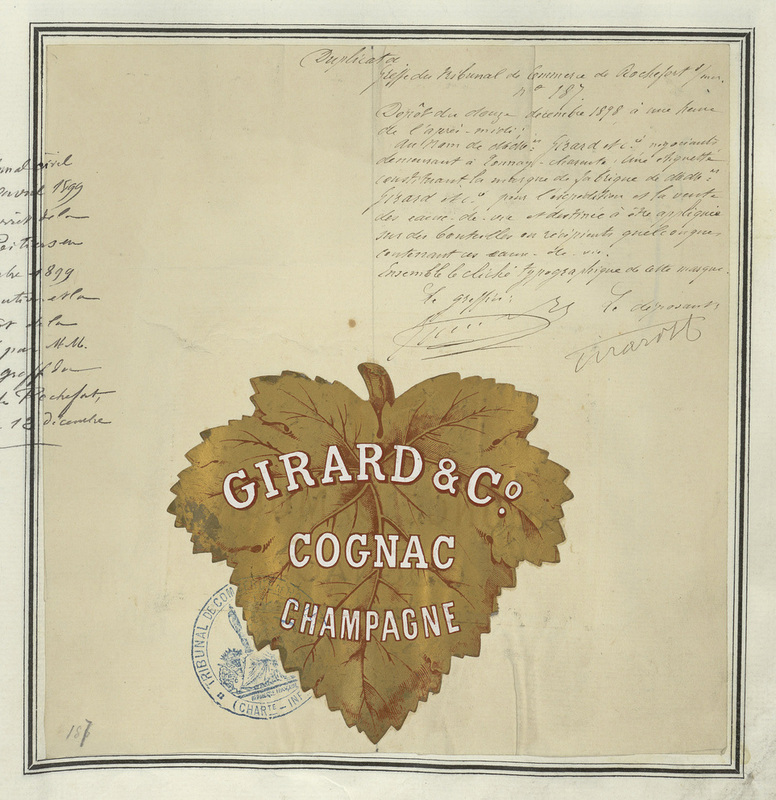 Duplicata
Greffe du Tribunal de Commerce de Rochefort s/mer.
n° 187.
Dépôt du douze décembre 1898 à une heure
de l'après-midi:
Au nom de Girard et Cie négociants
demeurant à Tonnay-Charente. Une étiquette
constituant la marque de fabrique de
Girard et Cie pour l'expédition et la vente
des eaux-de-vie et destinée à être appliquée
sur des bouteilles ou récipients quelconques
contenant ces eaux-de-vie.
Ensemble le cliché typographique de cette marque.
Le greffier: Le déposant:
civil
avril 1899
de la
Poitiers en
1899
et la
de la
par MM.
greffe du
de Rochefort,
12 décembre
GIRARD & Co.
COGNAC
CHAMPAGNE
TRIBUNAL DE COM
(CHARTE_INF
187